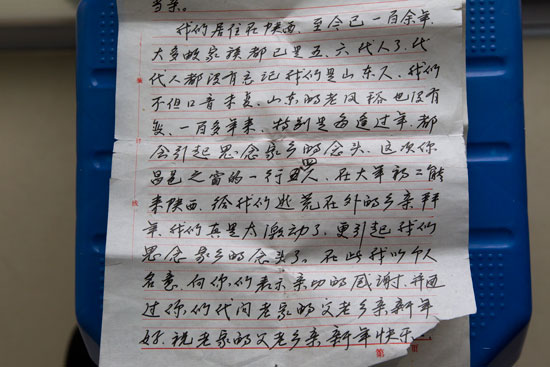 乡亲。
我们居住在陕西，至今已一百余年，
大多的家族都已是五、六代人了，代
代人都没有忘记我们是山东人，我们
不但口音未变，山东的老风俗也没有
变，一百多年来，特别是每逢过年，都
会引起思念家乡的念头，这次你
昌邑之窗的一行四人，在大年初二能
来陕西，给我们逃荒在外的乡亲拜
年，我们真是太激动了，更引起我们
思念家乡的念头了。在此我以个人
名意，向你们表示亲切的感谢，并通
过你们代问老家的父老乡亲新年
好，祝老家的父老乡亲新年快乐
第 页